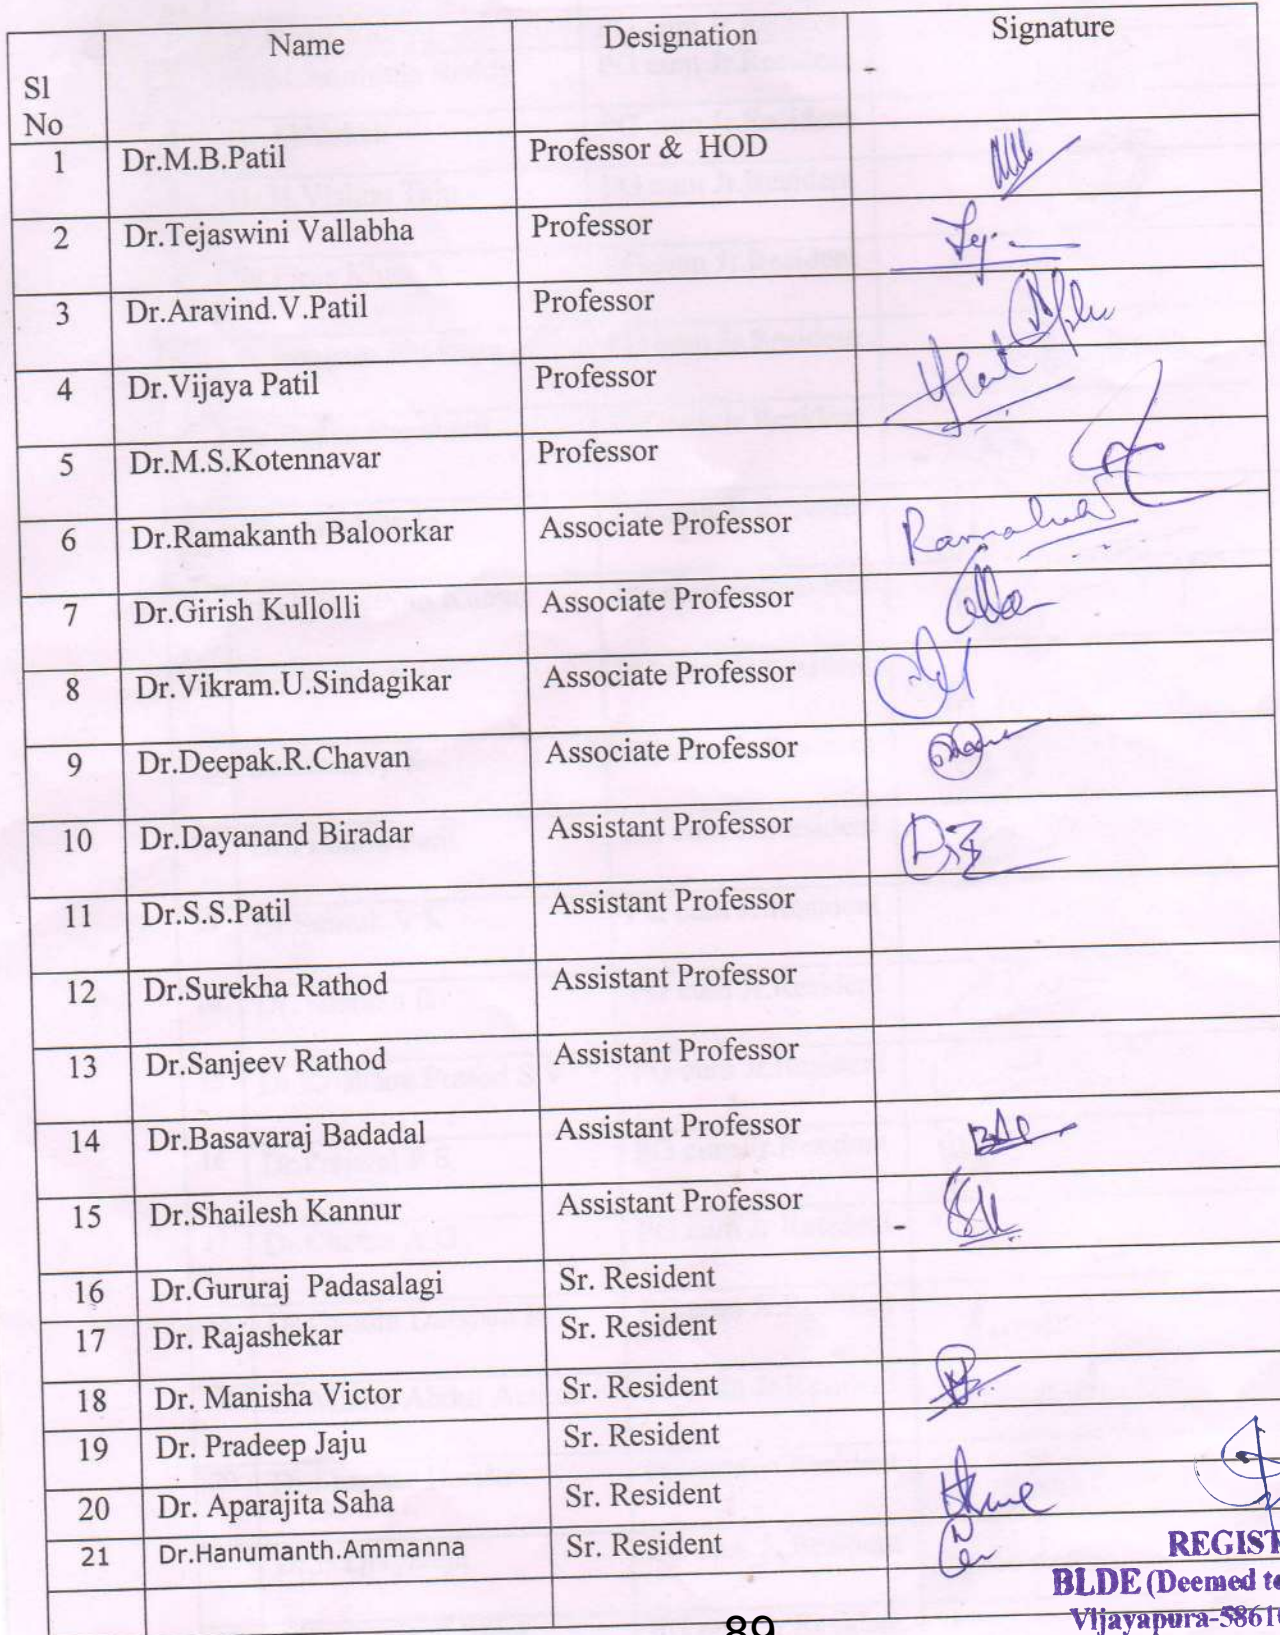 Sl No Name Designation Signature
1 Dr.M.B.Patil Professor & HOD
2 Dr.Tejaswini Vallabha Professor
3 Dr.Aravind.V.Patil Professor
4 Dr.Vijaya Patil Professor
5 Dr.M.S.Kotennavar Professor
6 Dr.Ramakanth Baloorkar Associate Professor
7 Dr.Girish Kullolli Associate Professor
8 Dr.Vikram.U.Sindagikar Associate Professor
9 Dr.Deepak.R.Chavan Associate Professor
10 Dr.Dayanand Biradar Assistant Professor
11 Dr.S.S.Patil Assistant Professor
12 Dr.Surekha Rathod Assistant Professor
13 Dr.Sanjeev Rathod Assistant Professor
14 Dr.Basavaraj Badadal Assistant Professor
15 Dr.Shailesh Kannur Assistant Professor
16 Dr.Gururaj Padasalagi Sr. Resident
17 Dr. Rajashekar Sr. Resident
18 Dr. Manisha Victor Sr. Resident
19 Dr. Pradeep Jaju Sr. Resident
20 Dr. Aparajita Saha Sr. Resident
21 Dr.Hanumanth.Ammanna Sr. Resident
REGIST
BLDE (Deemed to
Vijayapura-5861
89